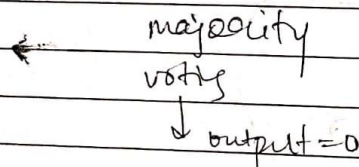 majority
voting
output = 0